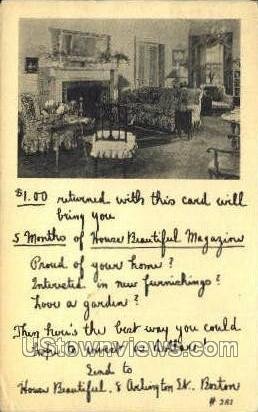 $1.00 returned with this card will
bring you
5 Months of House Beautiful Magazine
Proud of your home?
Interested in new furnishings?
Love a garden?
Then here's the best way you could
hope to invest a dollar!
UStownviews.com
Send to
House Beautiful, 8 Arlington St. Boston
# 281